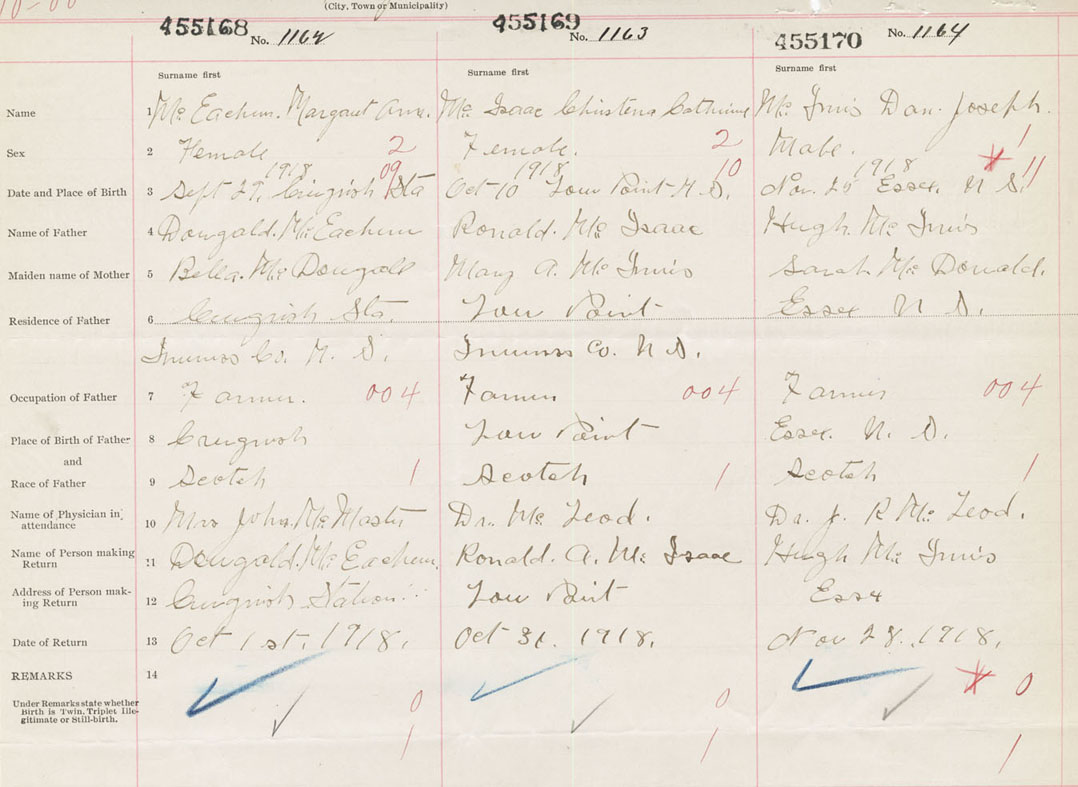 10-00
(City, Town or Municipality)
455168 No. 1162 455169 No. 1163 455170 No. 1164
Surname first Surname first Surname first
Name 1 Mc Eachern. Margaret Ann. Mc Isaac Christena Catherine Mc Innis Dan. Joseph.
Sex 2 Female 2 Female. 2 Male. 1
1918 09 1918 10 1918 11
Date and Place of Birth 3 Sept 27, Craignish Sta Oct 10 Low Point N.S. Nov. 25 Essex N S.
Name of Father 4 Dougald. Mc Eachern Ronald. Mc Isaac Hugh Mc Innis
Maiden name of Mother 5 Bella. Mc Dougall Mary A. Mc Innis Sarah Mc Donald.
Residence of Father 6 Craignish Sta. Low Point Essex N S.
Inverness Co. N. S. Inverness Co. N S.
Occupation of Father 7 Farmer. 004 Farmer 004 Farmer 004
Place of Birth of Father 8 Craignish Low Point Essex. N. S.
and
Race of Father 9 Scotch 1 Scotch 1 Scotch 1
Name of Physician in attendance 10 Mrs John Mc Master Dr. Mc Leod. Dr. J. R Mc Leod.
Name of Person making Return 11 Dougald. Mc Eachern. Ronald. A. Mc Isaac Hugh Mc Innis
Address of Person making Return 12 Craignish Station Low Point Essex
Date of Return 13 Oct 1st. 1918. Oct 31. 1918. Nov 28. 1918.
REMARKS 14
Under Remarks state whether Birth is Twin, Triplet Illegitimate or Still-birth.
0 0 0
1 1 1